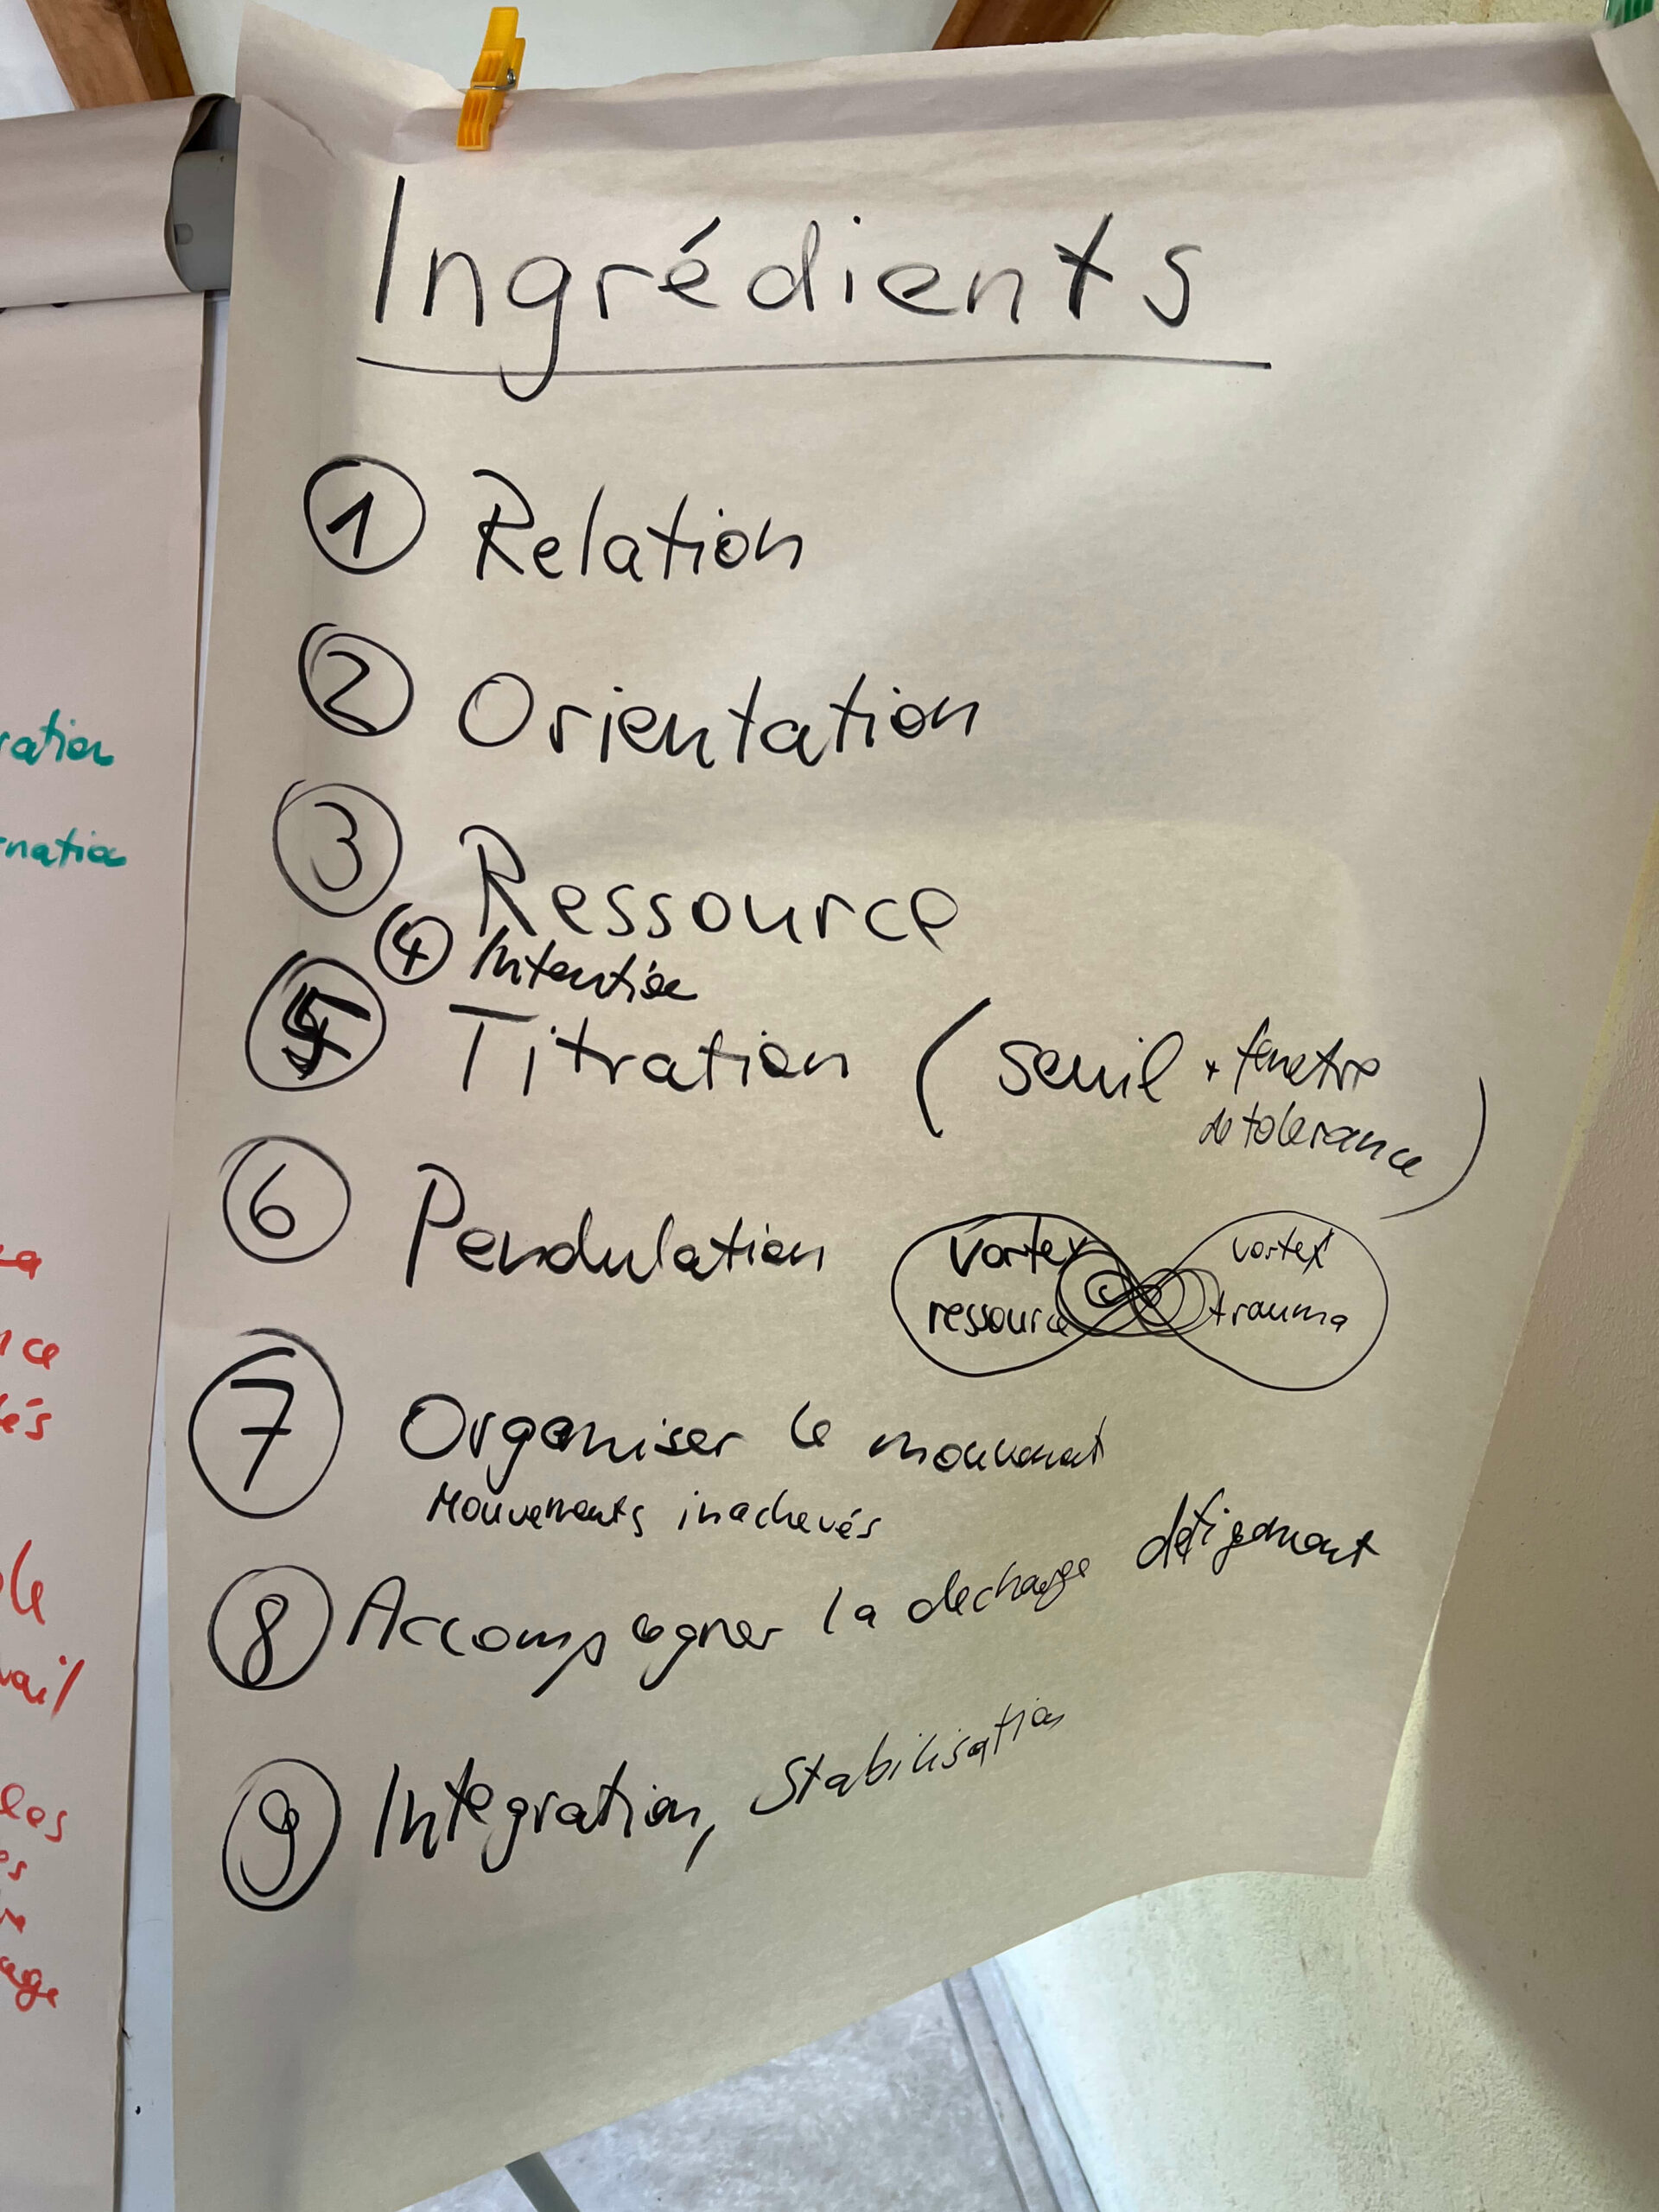 Ingrédients
① Relation
② Orientation
③ Ressource
④ Intention
⑤ Titration ( seuil + fenetre
de tolerance )
⑥ Pendulation
vortex
ressource
vortex
trauma
⑦ Organiser le mouvement
Mouvements inachevés
⑧ Accompagner la decharge defigement
⑨ Integration, Stabilisation
ration
nce
és
vail
les
age